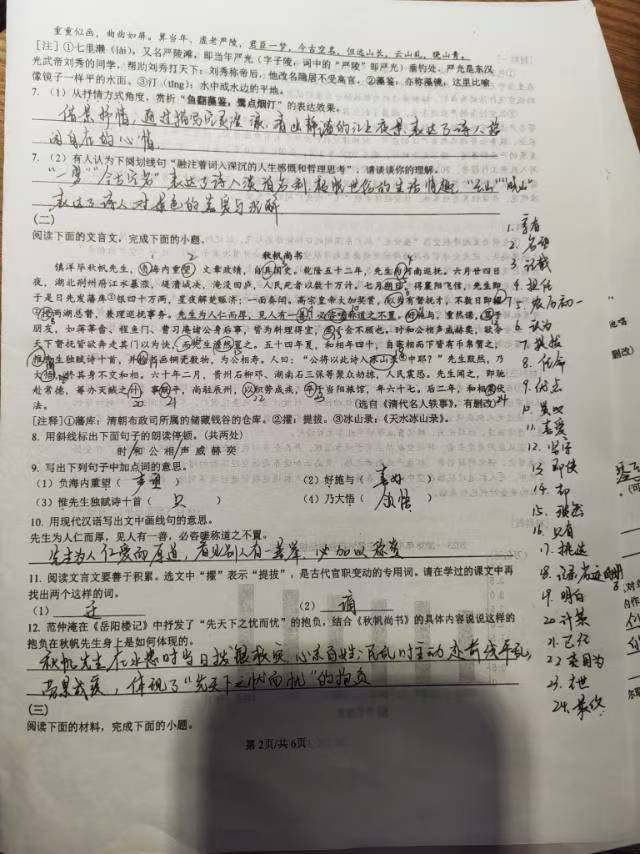 重重似画，曲曲如屏。算当年、虚老严陵，君臣一梦，今古空名。但远山长，云山乱，晓山青。
[注] ①七里濑（lài），又名严陵滩，即当年严光（字子陵，词中的“严陵”即严光）垂钓处，严光是东汉
光武帝刘秀的同学，帮助刘秀打天下；刘秀称帝后，他改名隐居不受高官。②藻鉴：亦称藻镜，这里比喻
像镜子一样平的水面。③汀（tīng）：水中或水边的平地。
7.（1）从抒情方式角度，赏析“鱼翻藻鉴，鹭点烟汀”的表达效果。
借景抒情，通过描写
闲自在的心情
7.（2）有人认为下阕划线句“融注着词人深沉的人生感慨和哲理思考”，请谈谈你的理解。
“一梦”“今古空名”表达了诗人
表达了诗人对景色的喜爱与
（二）
阅读下面的文言文，完成下面的小题。
秋帆尚书
镇洋毕秋帆先生，负海内重望，文章政绩，自具国史。乾隆五十二年，先生为河南巡抚。六月廿四日
夜，湖北荆州府江水暴涨，堤溃城决，淹没田庐，人民死者以数十万计。七月朔，得襄阳飞信，先生即
于是日先发藩库①银四十万两，星夜解楚赈济；一面奏闻。高宗皇帝大加奖赏，以为有督抚才，不数日即擢
②两湖总督，兼理巡抚事务。先生为人仁而厚，见人有一善，必咨嗟称道之不置。好施与，重然诺，笃于
朋友，如蒋莘畬、程鱼门、曹习庵诸公身后事，皆为料理得宜，虽千金不顾也。时和公相声威赫奕，欲令
天下督抚皆欲奔走其门以为快，而先生澹然置之。五十四年夏，和相年四十，自宰相而下皆有币帛贺之，
惟先生独赋诗十首，并检书画铜瓷数物，为公相寿。人曰：“公将以此诗入冰山录③中耶？”先生默然，乃
大悟，终其身不交和相。六十年二月，贵州石柳邓、湖南石三保等聚众劫掠，人民震恐。先生闻之，即驰
赴常德，筹办灭贼之计；事既平，尚驻辰州，以积劳成疾，卒于当阳旅馆，年六十七。后二年，和相果伏
法。
20 21 22 23 24
（选自《清代名人轶事》，有删改）
[注释] ①藩库：清朝布政司所属的储藏钱谷的仓库。②擢：提拔。③冰山录：《天水冰山录》。
8. 用斜线标出下面句子的朗读停顿。（共两处）
时/和公相/声威赫奕
9. 写出下列句子中加点词的意思。
（1）负海内重望（ ）（2）好施与（喜好）
（3）惟先生独赋诗十首（只）（4）乃大悟（ ）
10. 用现代汉语写出文中画线句的意思。
先生为人仁而厚，见人有一善，必咨嗟称道之不置。
先生为人仁爱而厚道，看见别人有一善举，必加以称赞
11. 阅读文言文要善于积累。选文中“擢”表示“提拔”，是古代官职变动的专用词。请在学过的课文中再
找出两个这样的词。
（1）迁（2）谪
12. 范仲淹在《岳阳楼记》中抒发了“先天下之忧而忧”的抱负，结合《秋帆尚书》的具体内容说说这样的
抱负在秋帆先生身上是如何体现的。
秋帆先生在水患时当日拨银救灾，心系百姓；民乱时主动赴前线平乱，
，体现了“先天下之忧而忧”的抱负
（三）
阅读下面的材料，完成下面的小题。
第 2页/共 6页
1.
2. 名望
3. 记载
4. 担任
5. 农历初一
6. 认为
7. 提拔
8. 任命
9. 优点
10.
11. 喜爱
12.
13. 即使
14. 却
15.
16. 只有
17. 挑选
18.
19. 明白
20. 计策
21. 已经
22. 因为
23. 去世
24. 最终